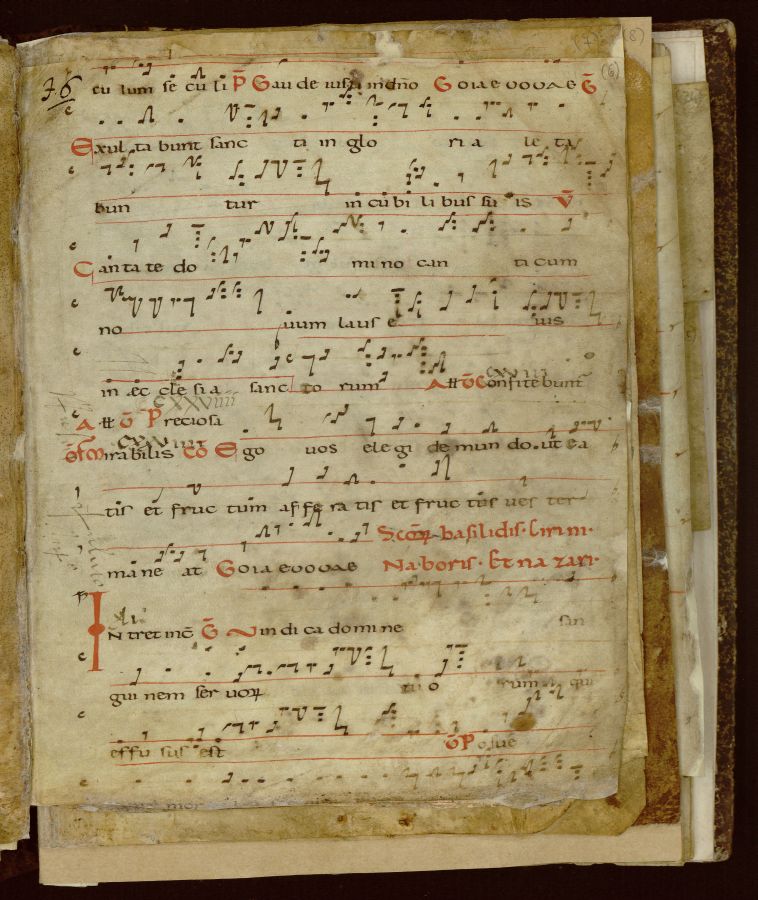 (7) (8)
(6)
76
cu lum se cu li P̄ Gau de iusti in dno Goia e v o v a e Ḡ
Exul ta bunt sanc ti in glo ri a le ta
bun tur in cu bi li bus su is V̄
Can ta te do mi no can ti cum
no uum laus e ius
in ec cle si a sanc to rum A ll Confite bunt
CXXVIIII
A ll Preciosa
Mirabilis CO Ego uos ele gi de mun do. ut ea
tis et fruc tum af fe ra tis et fruc tus ues ter
ma ne at Goia e v o v a e
Scōꝝ basilidis. cirini.
Naboris. Et na zari.
IN tret inc Ḡ Vin di ca domine san
gui nem ser uoꝝ tu o rum qui
effu sus est Posue